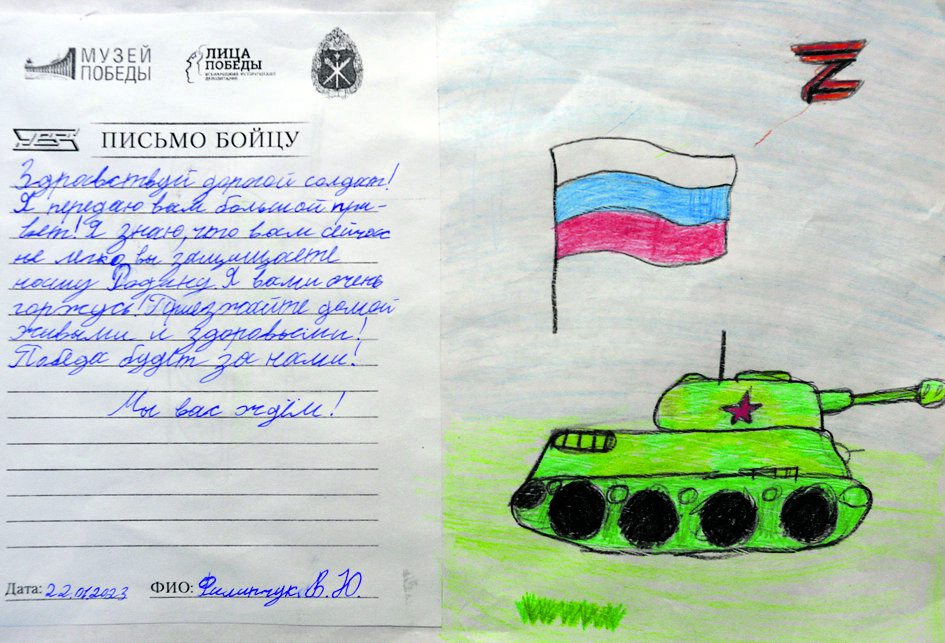 МУЗЕЙ
ПОБЕДЫ
ЛИЦА
ПОБЕДЫ
ПИСЬМО БОЙЦУ
Здравствуй дорогой солдат!
Я передаю вам большой при-
вет! Я знаю, что вам сейчас
не легко вы защищаете
нашу Родину. Я вами очень
горжусь! Приезжайте домой
живыми и здоровыми!
Победа будет за нами!
Мы вас ждём!
Дата: 22.01.2023 ФИО: Филипчук В. Ю.
Z